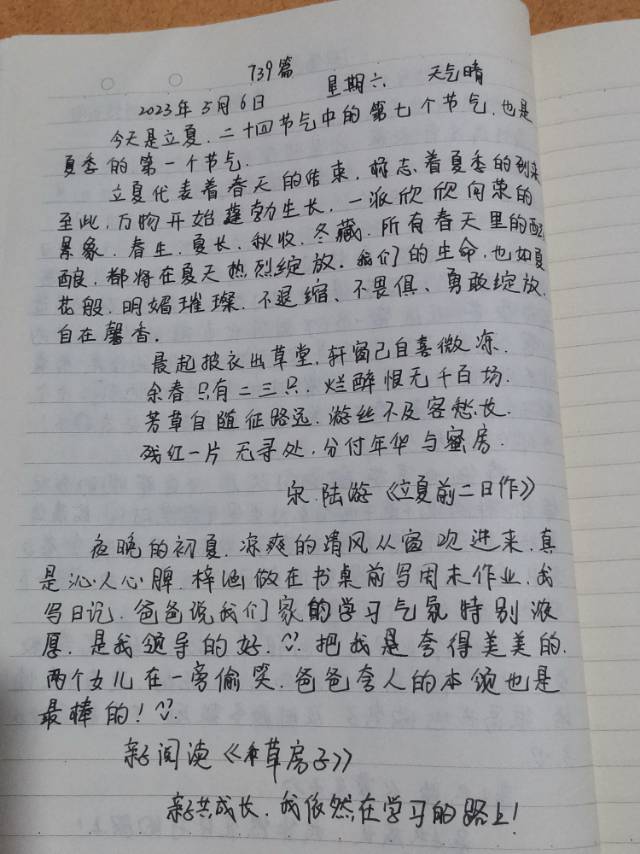 739篇
2023年5月6日 星期六 天气晴
今天是立夏.二十四节气中的第七个节气.也是
夏季的第一个节气.
立夏代表着春天的结束,标志着夏季的到来
至此,万物开始蓬勃生长,一派欣欣向荣的
景象.春生,夏长,秋收,冬藏.所有春天里的酝
酿,都将在夏天热烈绽放.我们的生命,也如夏
花般,明媚璀璨.不退缩、不畏惧、勇敢绽放,
自在馨香.
晨起披衣出草堂,轩窗已自喜微凉.
余春只有二三只,烂醉恨无千百场.
芳草自随征路远,游丝不及客愁长.
残红一片无寻处,分付年华与蜜房.
宋.陆游《立夏前二日作》
夜晚的初夏,凉爽的清风从窗吹进来,真
是沁人心脾,梓涵做在书桌前写周末作业,我
写日记.爸爸说我们家的学习气氛特别浓
厚,是我领导的好.把我是夸得美美的.
两个女儿在一旁偷笑.爸爸夸人的本领也是
最棒的!
亲子阅读《草房子》
亲子共成长,我依然在学习的路上!